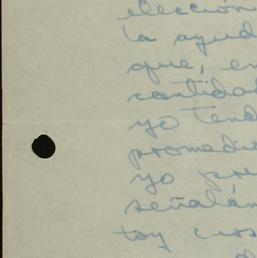 eleccion
la ayud
que, en
cantidad
yo tend
promedi
yo pre
señalán
toy cus